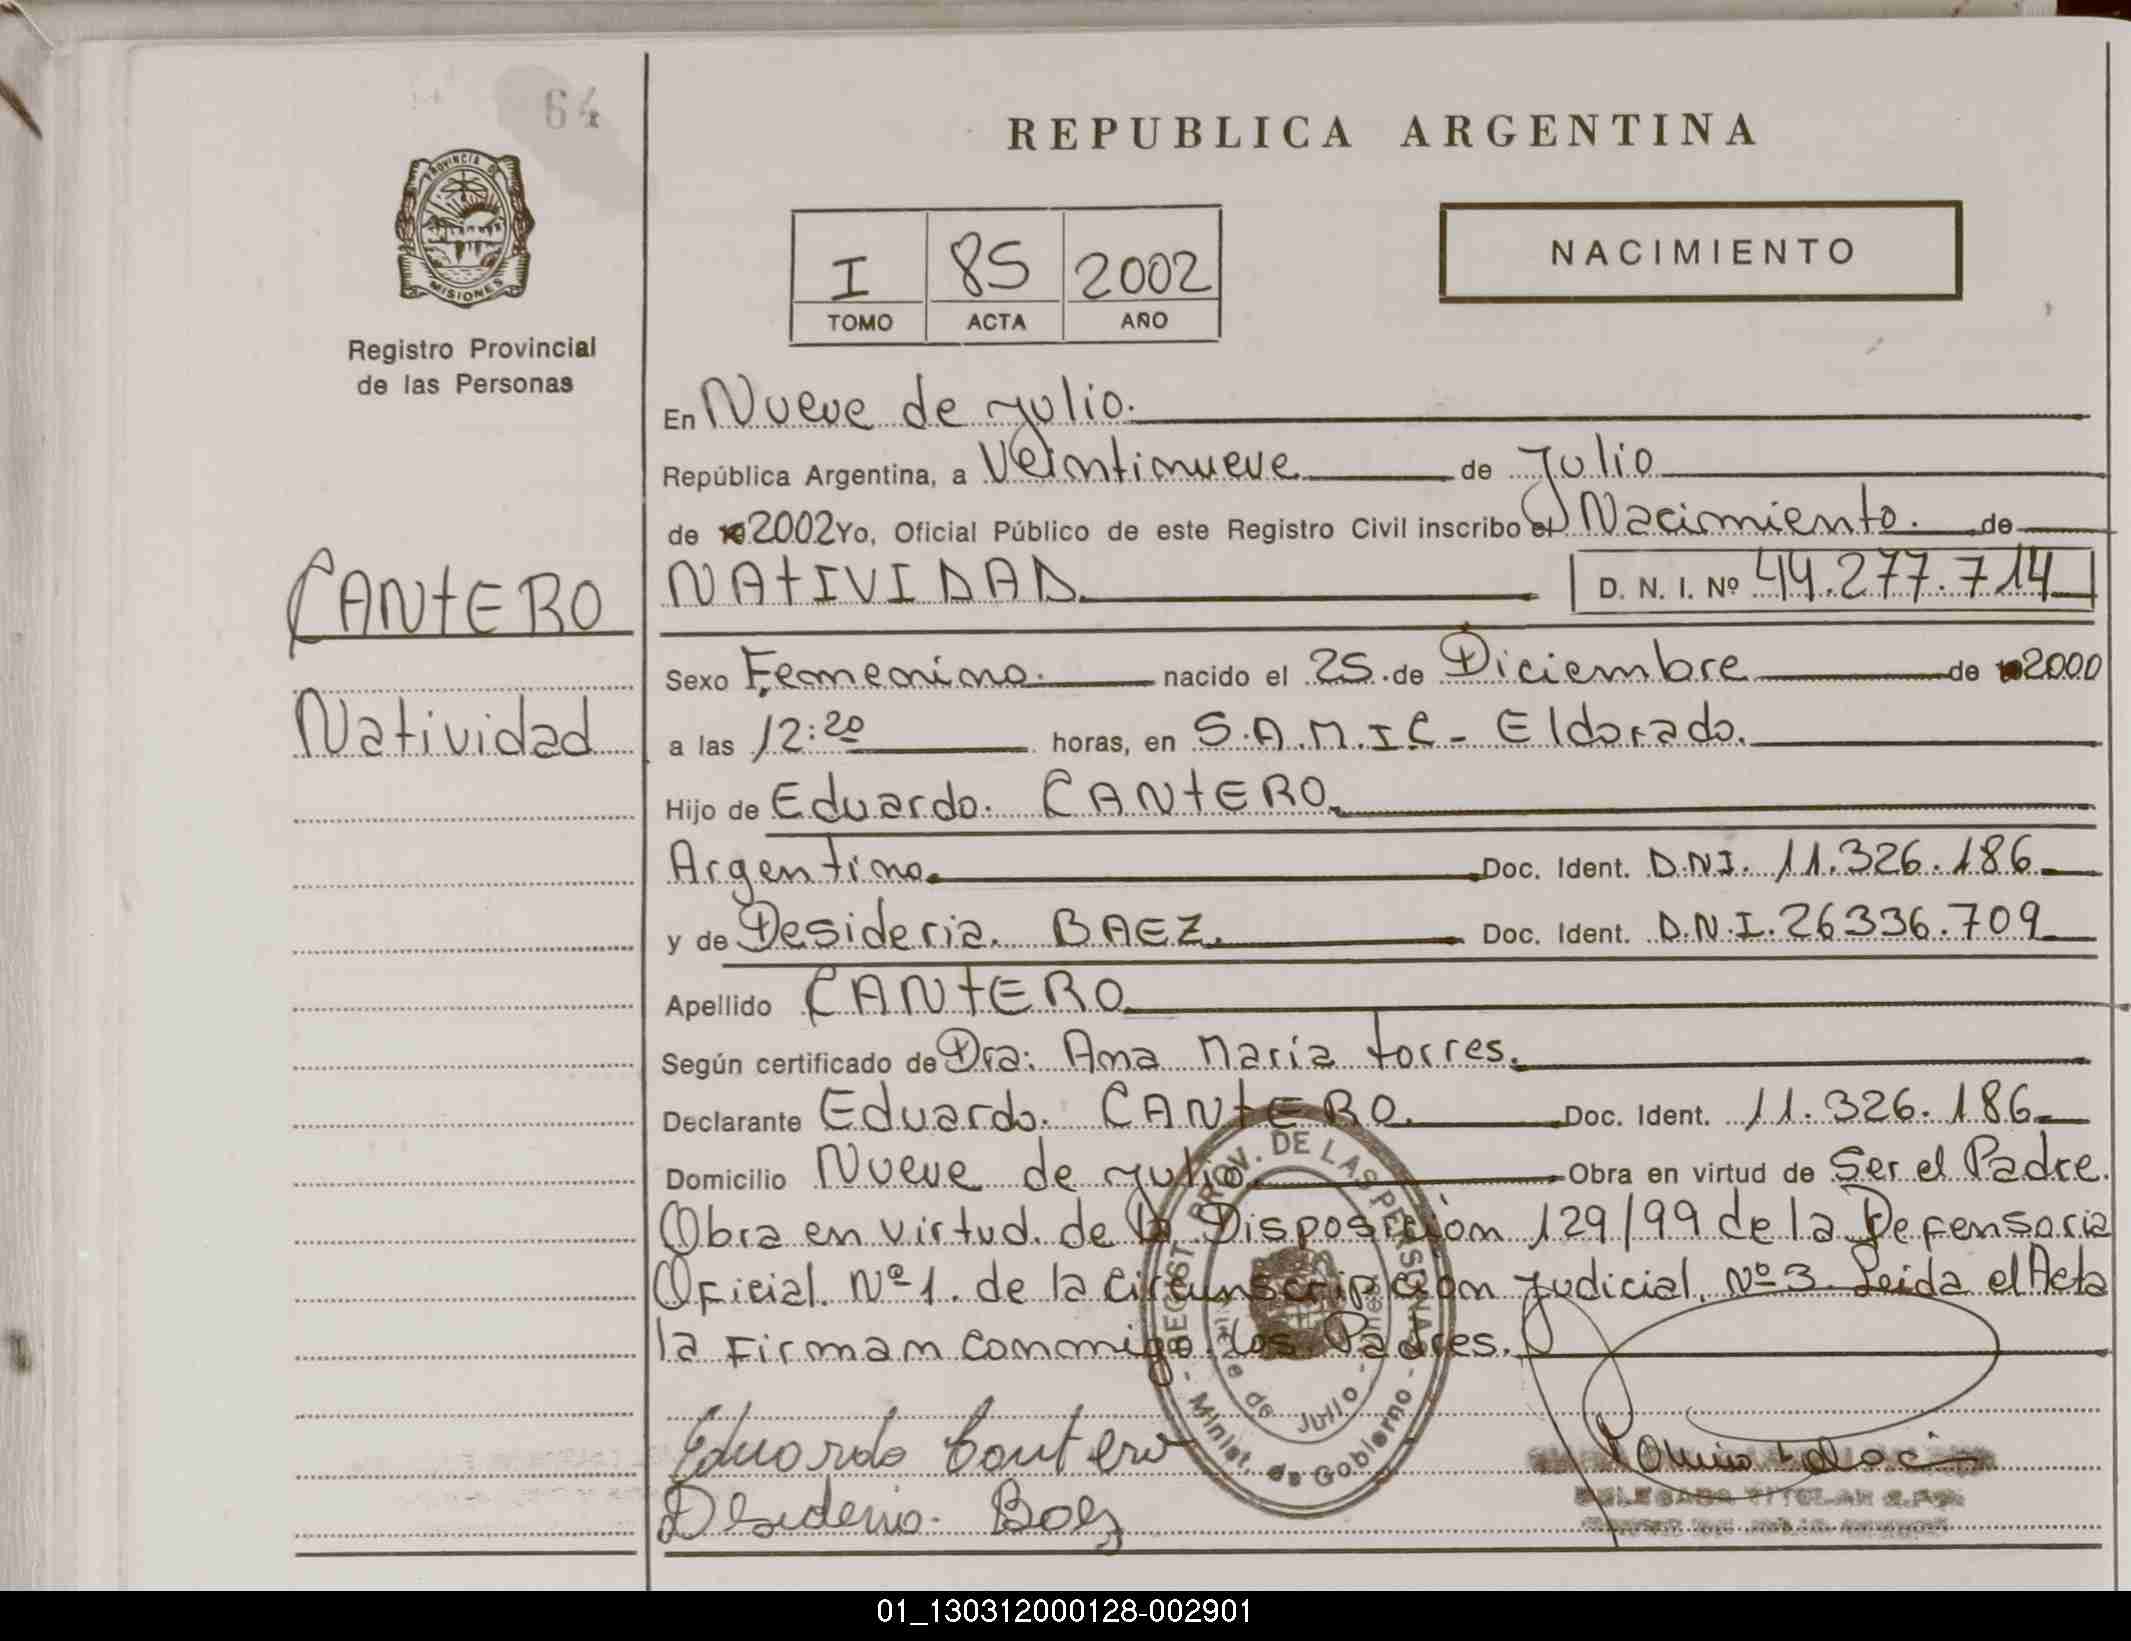 64
REPUBLICA ARGENTINA
PROVINCIA DE
MISIONES
Registro Provincial
de las Personas
NACIMIENTO
I 85 2002
TOMO ACTA AÑO
En Nueve de julio.
República Argentina, a Veintinueve de Julio
de 2002 Yo, Oficial Público de este Registro Civil inscribo el Nacimiento. de
CANTERO
NATIVIDAD. D. N. I. Nº 44.277.714
Natividad
Sexo Femenino. nacido el 25 de Diciembre de 2000
a las 12:20 horas, en S.A.M.I.C - Eldorado.
Hijo de Eduardo. CANTERO.
Argentino. Doc. Ident. D.N.I. 11.326.186
y de Desideria. BAEZ. Doc. Ident. D.N.I. 26336.709
Apellido CANTERO
Según certificado de Dra: Ana Maria Torres.
Declarante Eduardo. CANTERO. Doc. Ident. 11.326.186
Domicilio Nueve de julio. Obra en virtud de Ser el Padre.
Obra en virtud de la Disposición 129/99 de la Defensoria
Oficial. Nº 1. de la Circunscripcion Judicial. Nº 3 Leida el Acta
la Firman conmigo los Padres.
REGIST. PROV. DE LAS PERSONAS
de Julio
- Minist. de Gobierno -
Eduardo Cantero
Desideria. Baez
DELEGADA TITULAR
01_130312000128-002901